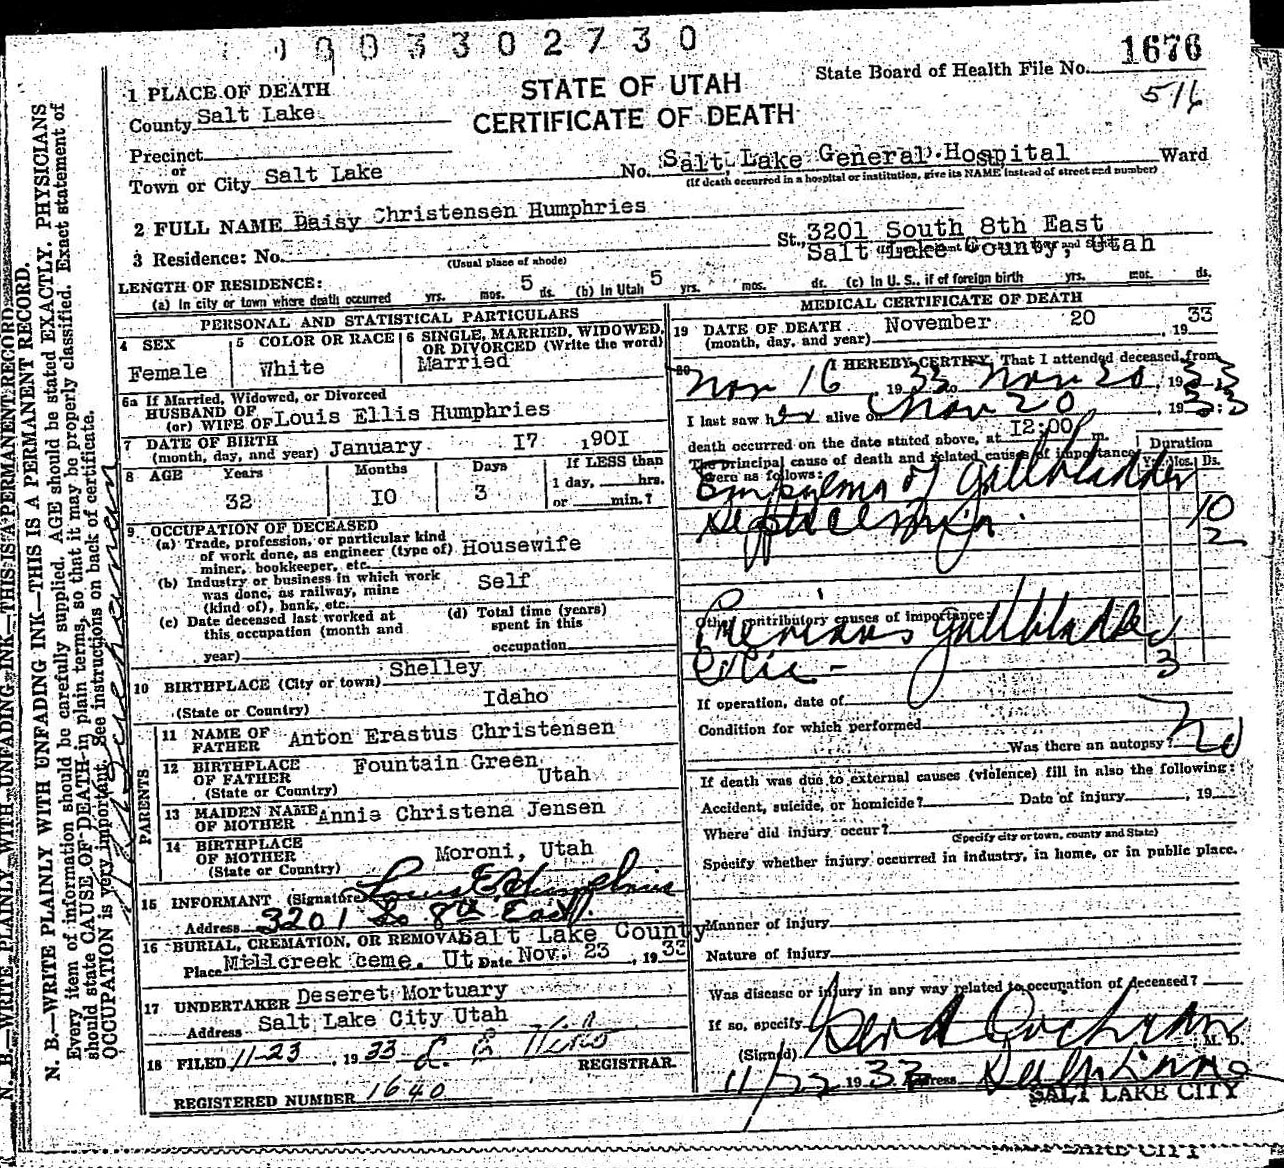 0003302730
1676
State Board of Health File No.
516
STATE OF UTAH
CERTIFICATE OF DEATH
1 PLACE OF DEATH
County Salt Lake
Precinct
or
Town or City Salt Lake
No. Salt Lake General Hospital Ward
(If death occurred in a hospital or institution, give its NAME instead of street and number)
2 FULL NAME Daisy Christensen Humphries
3 Residence: No. St., 3201 South 8th East
Salt Lake County, Utah
(Usual place of abode)
LENGTH OF RESIDENCE:
(a) In city or town where death occurred yrs. mos. 5 ds. (b) In Utah 5 yrs. mos. ds. (c) In U.S., if of foreign birth yrs. mos. ds.
PERSONAL AND STATISTICAL PARTICULARS
4 SEX
Female
5 COLOR OR RACE
White
6 SINGLE, MARRIED, WIDOWED, OR DIVORCED (Write the word)
Married
6a If Married, Widowed, or Divorced
HUSBAND OF
(or) WIFE OF Louis Ellis Humphries
7 DATE OF BIRTH
(month, day, and year) January 17 1901
8 AGE Years Months Days If LESS than
1 day, hrs.
32 10 3 or min.?
9 OCCUPATION OF DECEASED
(a) Trade, profession, or particular kind
of work done, as engineer (type of) Housewife
miner, bookkeeper, etc.
(b) Industry or business in which work Self
was done, as railway, mine
(kind of), bank, etc.
(c) Date deceased last worked at
this occupation (month and
year)
(d) Total time (years)
spent in this
occupation
10 BIRTHPLACE (City or town) Shelley
(State or Country) Idaho
PARENTS
11 NAME OF
FATHER Anton Erastus Christensen
12 BIRTHPLACE
OF FATHER Fountain Green
(State or Country) Utah
13 MAIDEN NAME
OF MOTHER Annie Christena Jensen
14 BIRTHPLACE
OF MOTHER Moroni, Utah
(State or Country)
15 INFORMANT (Signature) Louis E Humphries
Address 3201 So 8th East.
16 BURIAL, CREMATION, OR REMOVAL Salt Lake County
Place Millcreek ceme. Ut Date Nov. 23, 1933
17 UNDERTAKER Deseret Mortuary
Address Salt Lake City Utah
18 FILED 11-23, 1933
REGISTRAR.
REGISTERED NUMBER 1640
MEDICAL CERTIFICATE OF DEATH
19 DATE OF DEATH November 20, 1933
(month, day, and year)
20 I HEREBY CERTIFY, That I attended deceased from
Nov 16 1933 to Nov 20 1933
I last saw her alive on Nov 20 1933
death occurred on the date stated above, at 12:00 m.
The principal cause of death and related causes of importance
were as follows:
Duration
Yrs. Mos. Ds.
Empyema of Gallbladder 10
Septicemia 2
Other contributory causes of importance:
Previous gallbladder
Colic - 3
If operation, date of
Condition for which performed
Was there an autopsy? No
If death was due to external causes (violence) fill in also the following:
Accident, suicide, or homicide? Date of injury, 19
Where did injury occur?
(Specify city or town, county and State)
Specify whether injury occurred in industry, in home, or in public place.
Manner of injury
Nature of injury
Was disease or injury in any way related to occupation of deceased?
If so, specify
(Signed) Cochran M. D.
11/22 1933 Address
SALT LAKE CITY
N. B.—WRITE PLAINLY WITH UNFADING INK—THIS IS A PERMANENT RECORD.
N. B.—WRITE PLAINLY WITH UNFADING INK—THIS IS A PERMANENT RECORD.
Every item of information should be carefully supplied. AGE should be stated EXACTLY. PHYSICIANS
should state CAUSE OF DEATH in plain terms, so that it may be properly classified. Exact statement of
OCCUPATION is very important. See instructions on back of certificate.